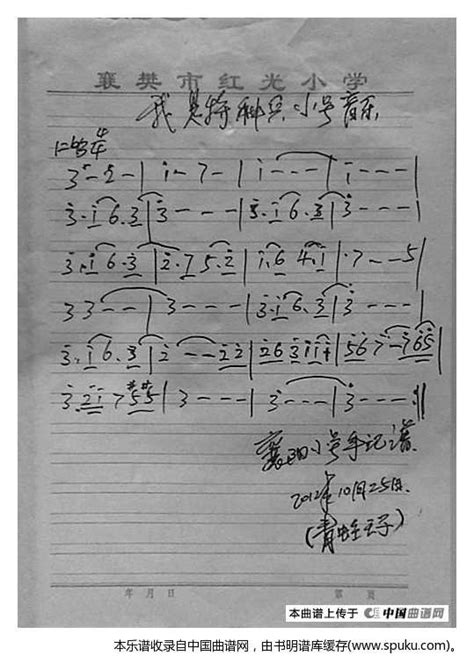 襄樊市红光小学
我是特种兵小号音乐
1=♭B 4/4
3·- 2 - | i - 7 - | i - - - | i - - - |
3·i 6·3 | 3 - - - | 3·i 6·3 | 3 - - - |
3·i 6·3 | 2·7 5·2 | i·6 4·i | ·7 - - 5 |
3 3 - - | 3 - - - | 3·i 6·3 | 3 - - - |
3·i 6·3 | 2 - - 2 2 |
3 - - - | 3 - - - | 3 - - - :||
襄阳小号手记谱
2012年10月25日.
(青蛙王子)
年 月 日 第 页
本曲谱上传于 中国曲谱网
本乐谱收录自中国曲谱网，由书明谱库缓存(www.spuku.com)。